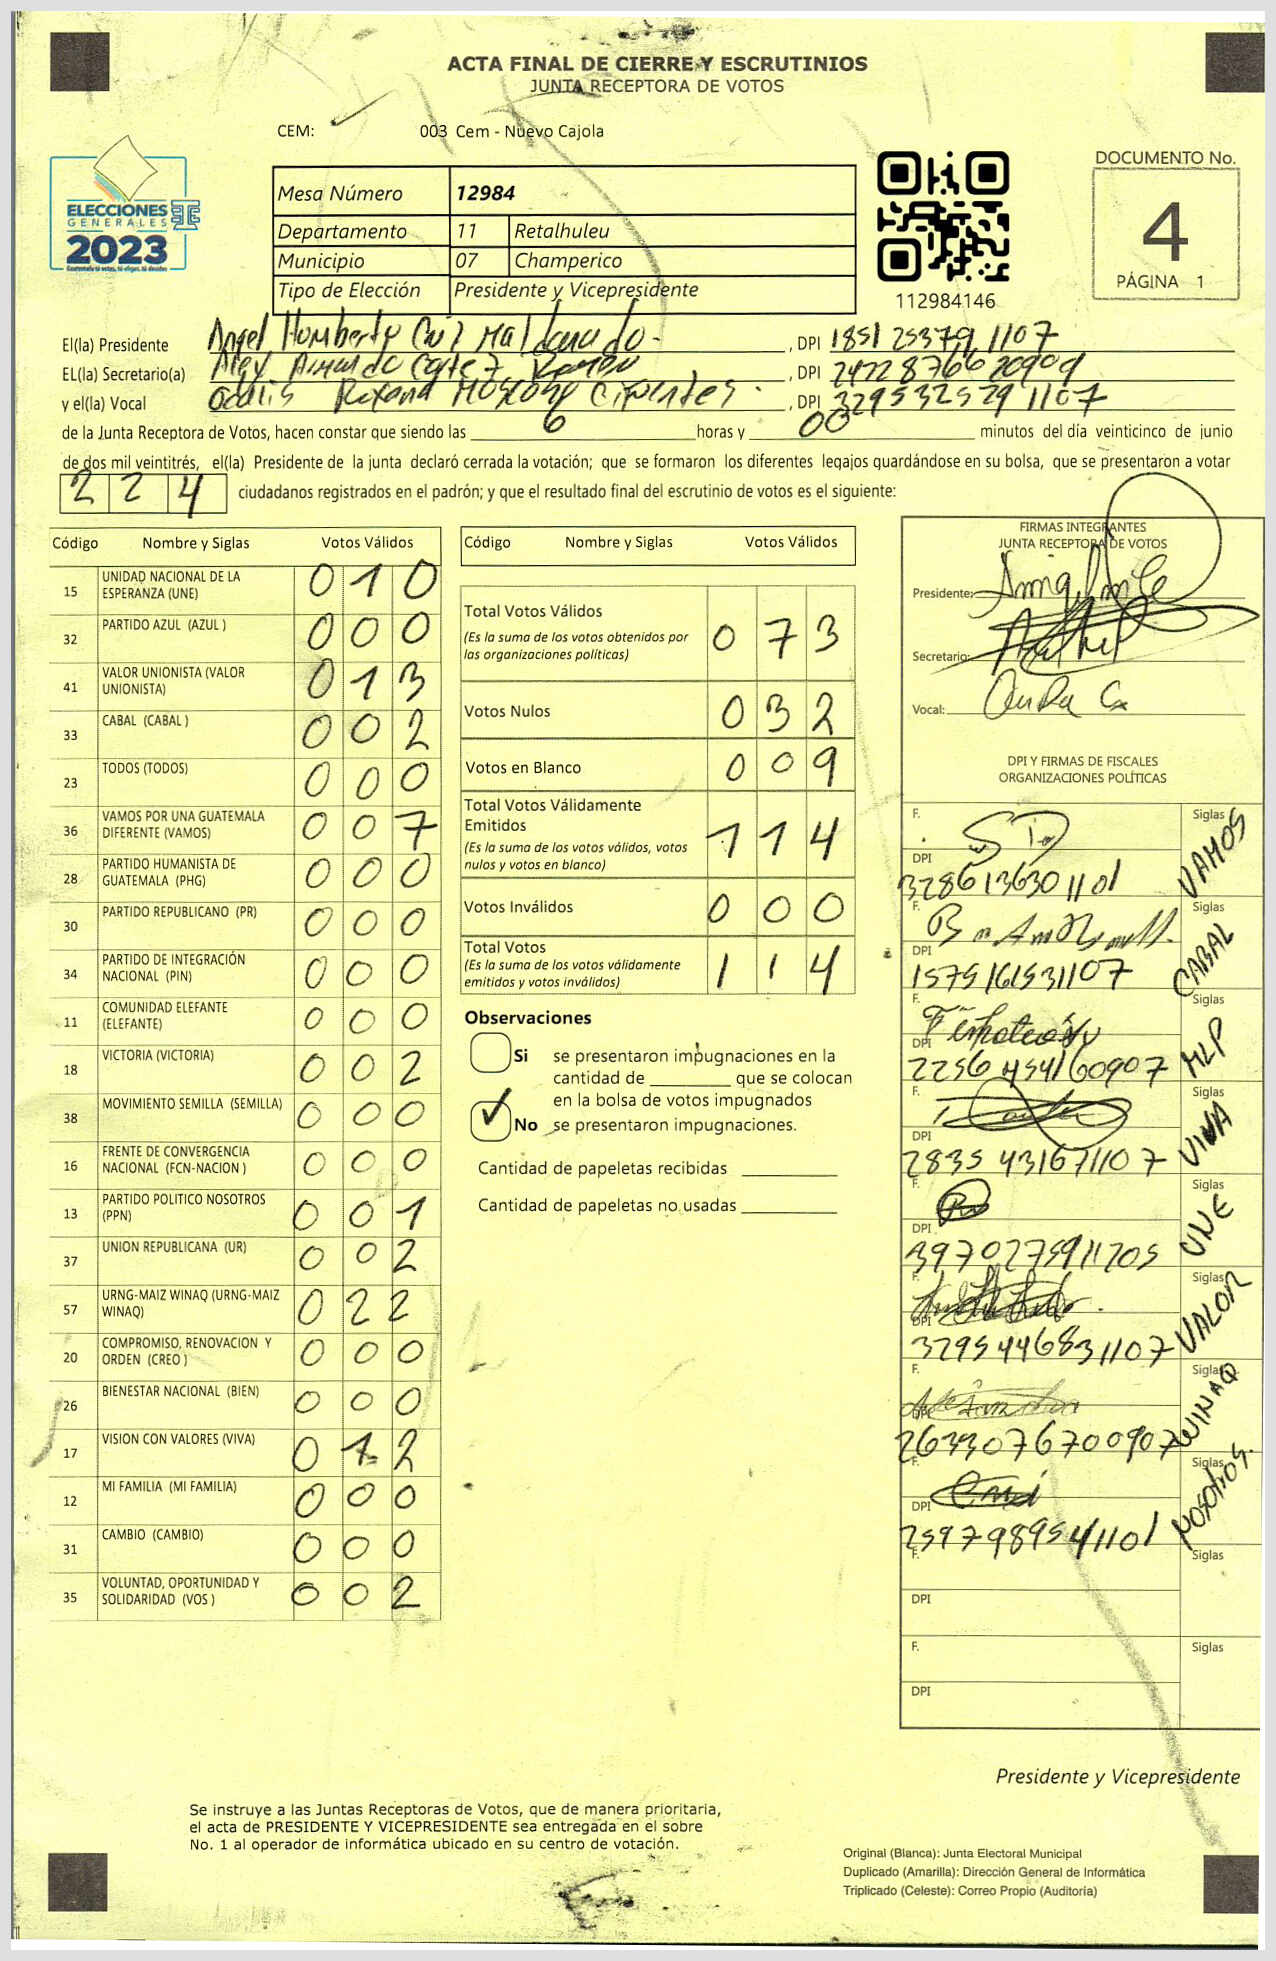 ACTA FINAL DE CIERRE Y ESCRUTINIOS
JUNTA RECEPTORA DE VOTOS
CEM: 003 Cem - Nuevo Cajola
ELECCIONES
GENERALES
2023
Mesa Número 12984
Departamento 11 Retalhuleu
Municipio 07 Champerico
Tipo de Elección Presidente y Vicepresidente
112984146
DOCUMENTO No.
4
PÁGINA 1
El(la) Presidente Angel Humberto Cruz Maldonado , DPI 1851 25379 1107
EL(la) Secretario(a) Alex Armando , DPI 2422876620909
y el(la) Vocal Odalis Roxana Cifuentes , DPI 3295325291107
de la Junta Receptora de Votos, hacen constar que siendo las 6 horas y 00 minutos del día veinticinco de junio
de dos mil veintitrés, el(la) Presidente de la junta declaró cerrada la votación; que se formaron los diferentes legajos guardándose en su bolsa, que se presentaron a votar
224 ciudadanos registrados en el padrón; y que el resultado final del escrutinio de votos es el siguiente:
Código Nombre y Siglas Votos Válidos
15 UNIDAD NACIONAL DE LA ESPERANZA (UNE) 010
32 PARTIDO AZUL (AZUL ) 000
41 VALOR UNIONISTA (VALOR UNIONISTA) 013
33 CABAL (CABAL ) 002
23 TODOS (TODOS) 000
36 VAMOS POR UNA GUATEMALA DIFERENTE (VAMOS) 007
28 PARTIDO HUMANISTA DE GUATEMALA (PHG) 000
30 PARTIDO REPUBLICANO (PR) 000
34 PARTIDO DE INTEGRACIÓN NACIONAL (PIN) 000
11 COMUNIDAD ELEFANTE (ELEFANTE) 000
18 VICTORIA (VICTORIA) 002
38 MOVIMIENTO SEMILLA (SEMILLA) 000
16 FRENTE DE CONVERGENCIA NACIONAL (FCN-NACION ) 000
13 PARTIDO POLITICO NOSOTROS (PPN) 001
37 UNION REPUBLICANA (UR) 002
57 URNG-MAIZ WINAQ (URNG-MAIZ WINAQ) 022
20 COMPROMISO, RENOVACION Y ORDEN (CREO ) 000
26 BIENESTAR NACIONAL (BIEN) 000
17 VISION CON VALORES (VIVA) 012
12 MI FAMILIA (MI FAMILIA) 000
31 CAMBIO (CAMBIO) 000
35 VOLUNTAD, OPORTUNIDAD Y SOLIDARIDAD (VOS ) 002
Código Nombre y Siglas Votos Válidos
Total Votos Válidos 073
(Es la suma de los votos obtenidos por
las organizaciones políticas)
Votos Nulos 032
Votos en Blanco 009
Total Votos Válidamente
Emitidos 114
(Es la suma de los votos válidos, votos
nulos y votos en blanco)
Votos Inválidos 000
Total Votos 114
(Es la suma de los votos válidamente
emitidos y votos inválidos)
Observaciones
Si se presentaron impugnaciones en la
cantidad de ________ que se colocan
en la bolsa de votos impugnados
✓ No se presentaron impugnaciones.
Cantidad de papeletas recibidas
Cantidad de papeletas no usadas
FIRMAS INTEGRANTES
JUNTA RECEPTORA DE VOTOS
Presidente:
Secretario:
Vocal:
DPI Y FIRMAS DE FISCALES
ORGANIZACIONES POLÍTICAS
F. Siglas VAMOS
DPI 3286136301101
F. Siglas CABAL
DPI 1575161531107
F. Siglas MLP
DPI 2256454160907
F. Siglas VIVA
DPI 2835431671107
F. Siglas UNE
DPI 3970275911705
F. Siglas VALOR
DPI 3295446831107
F. Siglas WINAQ
DPI 2633076700907
F. Siglas NOSOTROS.
DPI 2597989541101
F. Siglas
DPI
F. Siglas
DPI
Presidente y Vicepresidente
Se instruye a las Juntas Receptoras de Votos, que de manera prioritaria,
el acta de PRESIDENTE Y VICEPRESIDENTE sea entregada en el sobre
No. 1 al operador de informática ubicado en su centro de votación.
Original (Blanca): Junta Electoral Municipal
Duplicado (Amarilla): Dirección General de Informática
Triplicado (Celeste): Correo Propio (Auditoría)